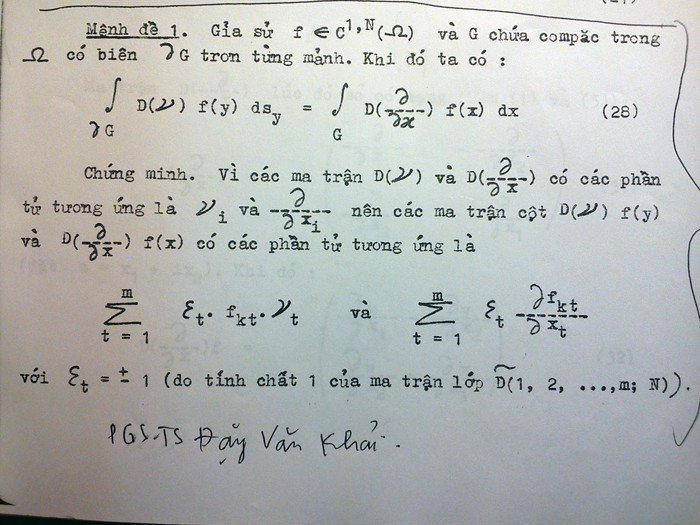 Mệnh đề 1. Gỉa sử f ∈ C¹,ᴺ(Ω) và G chứa compăc trong
Ω có biên ∂G trơn từng mảnh. Khi đó ta có :
∫_∂G D(ν) f(y) ds_y = ∫_G D(∂/∂x) f(x) dx (28)
Chứng minh. Vì các ma trận D(ν) và D(∂/∂x) có các phần
tử tương ứng là ν_i và ∂/∂x_i nên các ma trận cột D(ν) f(y)
và D(∂/∂x) f(x) có các phần tử tương ứng là
∑_{t = 1}^{m} ε_t. f_kt. ν_t và ∑_{t = 1}^{m} ε_t ∂f_kt/∂x_t
với ε_t = ± 1 (do tính chất 1 của ma trận lớp D̃(1, 2, ...,m; N)).
PGS.TS Đặng Văn Khải.